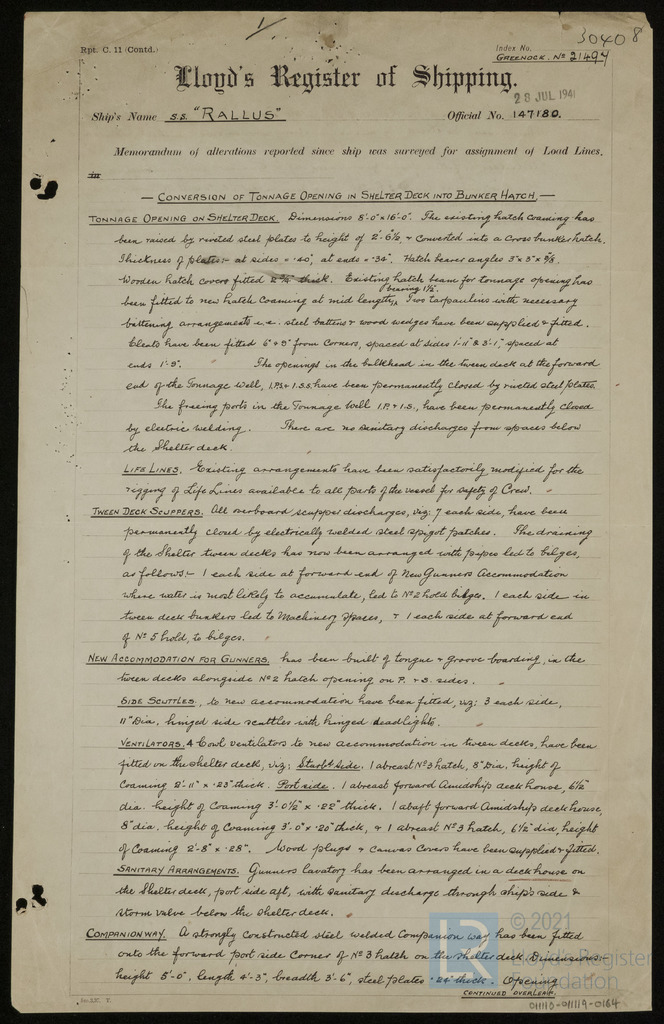 30408
Rpt. C. 11 (Contd.)
Index No.
GREENOCK. No 21494
Lloyd's Register of Shipping.
28 JUL 1941
Ship's Name S.S. "RALLUS" Official No. 147180.
Memorandum of alterations reported since ship was surveyed for assignment of Load Lines.
in
— CONVERSION OF TONNAGE OPENING IN SHELTER DECK INTO BUNKER HATCH. —
TONNAGE OPENING ON SHELTER DECK. Dimensions 8'-0" x 16'-0". The existing hatch coaming has
been raised by riveted steel plates to height of 2'-6½, & converted into a Cross bunker hatch.
Thickness of plates:- at sides = .40", at ends = .34". Hatch bearer angles 3" x 3" x 3/8.
Wooden hatch covers fitted 2¾" thick. Existing hatch beam for tonnage opening has
bearing 1½".
been fitted to new hatch coaming at mid length, Two tarpaulins with necessary
battening arrangements i.e. steel battens & wood wedges have been supplied & fitted.
Cleats have been fitted 6" & 9" from Corners, spaced at sides 1'-11" & 3'-1", spaced at
ends 1'-9". The openings in the bulkhead in the tween deck at the forward
end of the Tonnage Well, 1.P.S & 1.S.S. have been permanently closed by riveted steel plates.
The freeing ports in the Tonnage Well 1.P. & 1.S., have been permanently closed
by electric welding. There are no sanitary discharges from spaces below
the Shelter deck.
LIFE LINES. Existing arrangements have been satisfactorily modified for the
rigging of Life Lines available to all parts of the vessel for safety of Crew.
TWEEN DECK SCUPPERS. All overboard scupper discharges, viz; 7 each side, have been
permanently closed by electrically welded steel spigot patches. The draining
of the Shelter tween decks has now been arranged with pipes led to bilges,
as follows:- 1 each side at forward end of New Gunners Accommodation
where water is most likely to accumulate, led to No 2 hold bilges. 1 each side in
tween deck bunkers led to Machinery spaces, & 1 each side at forward end
of No 5 hold, to bilges.
NEW ACCOMMODATION FOR GUNNERS. has been built of tongue & groove boarding, in the
tween decks alongside No 2 hatch opening on P. & S. sides.
SIDE SCUTTLES, to new accommodation have been fitted, viz; 3 each side,
11" Dia, hinged side scuttles with hinged deadlights.
VENTILATORS. 4 Cowl ventilators to new accommodation in tween decks, have been
fitted on the shelter deck, viz; Starbd side. 1 abreast No 3 hatch, 8" Dia, height of
Coaming 2'-11" x .23" thick. Port side. 1 abreast forward Amidship deck house, 6½"
dia. height of Coaming 3'-0½" x .22" thick. 1 abaft forward Amidship deck house,
8" dia, height of Coaming 3'-0" x .20" thick, & 1 abreast No 3 hatch, 6½" dia, height
of Coaming 2'-8" x .28". Wood plugs & Canvas Covers have been supplied & fitted.
SANITARY ARRANGEMENTS. Gunners lavatory has been arranged in a deckhouse on
the Shelter deck, port side aft, with sanitary discharge through ship's side &
storm valve below the shelter deck.
COMPANIONWAY. A strongly Constructed steel welded Companion way has been fitted
onto the forward port side Corner of No 3 hatch on the shelter deck. Dimensions:
height 5'-0", length 4'-3", breadth 3'-6", steel plates .24" thick. Opening
CONTINUED OVERLEAF.
© 2021
Lloyd's Register
Foundation
011113-011119-0164